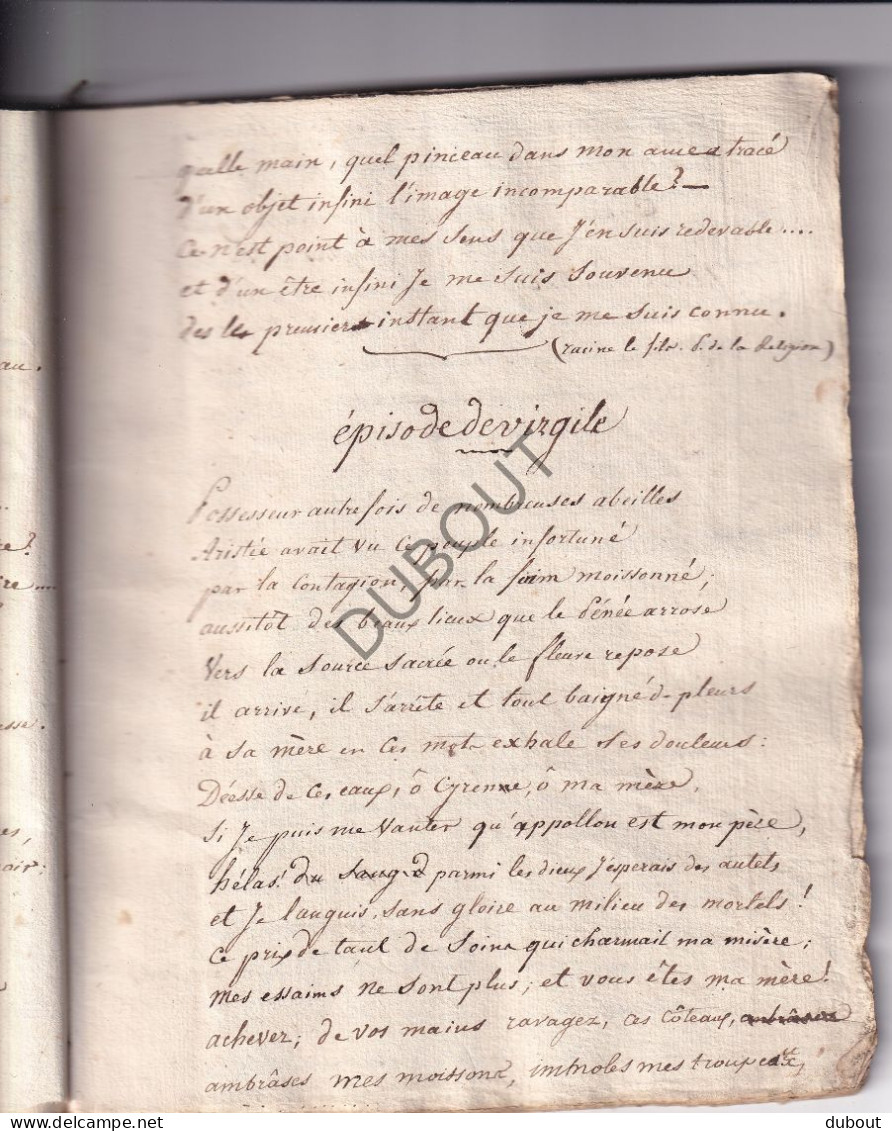 quelle main, quel pinceau dans mon ame a tracé
d'un objet infini l'image incomparable? —
Ce n'est point à mes sens que j'en suis redevable....
et d'un être infini Je me suis souvenu
des le premier instant que je me suis connu.
(racine le fils. P. de la Religion)
épisode de virgile
Possesseur autrefois de nombreuses abeilles
Aristée avait vu ce peuple infortuné
par la contagion, par la faim moissonné;
aussitôt des beaux lieux que le Pénée arrose
Vers la source sacrée ou le fleuve repose
il arrive, il s'arrête et tout baigné de pleurs
à sa mère en ces mots exhale ses douleurs:
Déesse de ces eaux, ô Cyrenne, ô ma mère,
si Je puis me vanter qu'appollon est mon père,
hélas! du sang d parmi les dieux J'esperais des autels
et Je languis, sans gloire au milieu des mortels!
ce prix de tant de soins qui charmait ma misère;
mes essaims ne sont plus; et vous êtes ma mère!
achever; de vos mains ravagez, ces côteaux, embrâsez
ambrâses mes moissons, immoles mes troupeaux,
au.
?
ire....
sse.
es,
air;
DUBOUT
delcampe.net
dubout